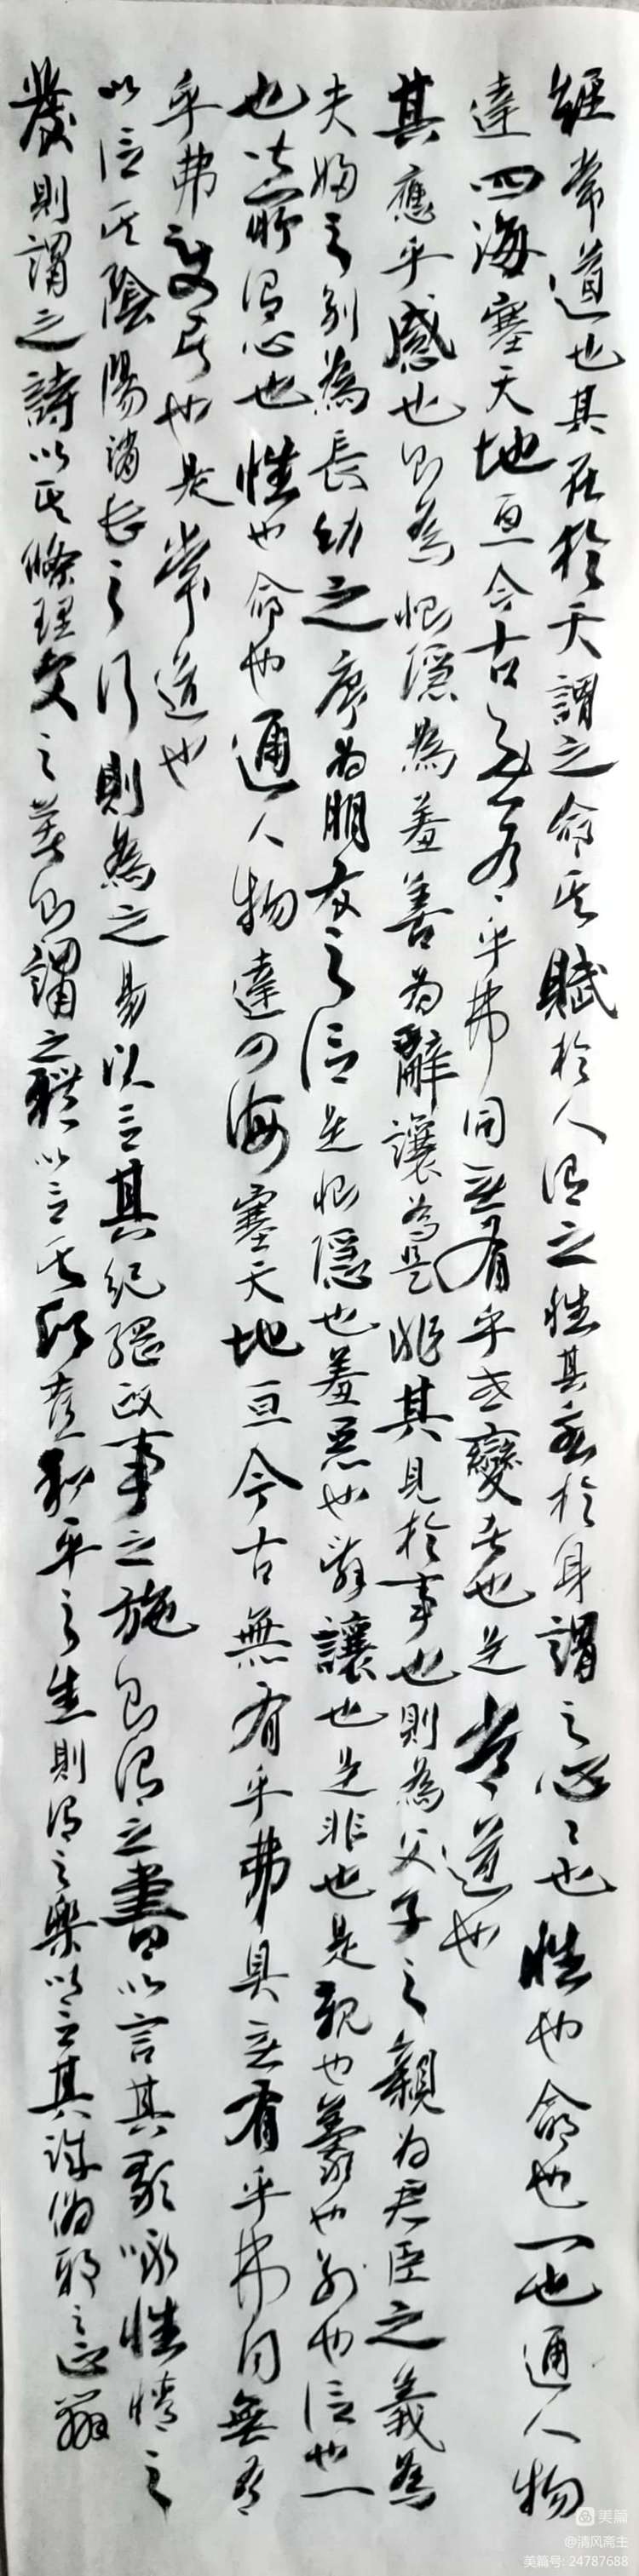 經常道也其在於天謂之命其賦於人謂之性其主於身謂之心〻也性也命也一也通人物
達四海塞天地亘今古無有乎弗同無有乎或變者也是常道也
其應乎感也則為惻隱為羞善為辭讓為是非其見於事也則為父子之親為君臣之義為
夫婦之別為長幼之序為朋友之信是惻隱也羞惡也辭讓也是非也是親也義也別也信也一
也皆所謂心也性也命也通人物達四海塞天地亘今古無有乎弗具無有乎弗同無有
乎弗變者也是常道也
以言其陰陽消長之行則為之易以言其紀綱政事之施則謂之書以言其歌詠性情之
發則謂之詩以其條理文之著則謂之禮以言其欣喜和平之生則謂之樂以言其誠偽邪之正辯
美篇
@清风斋主
美篇号: 24787688